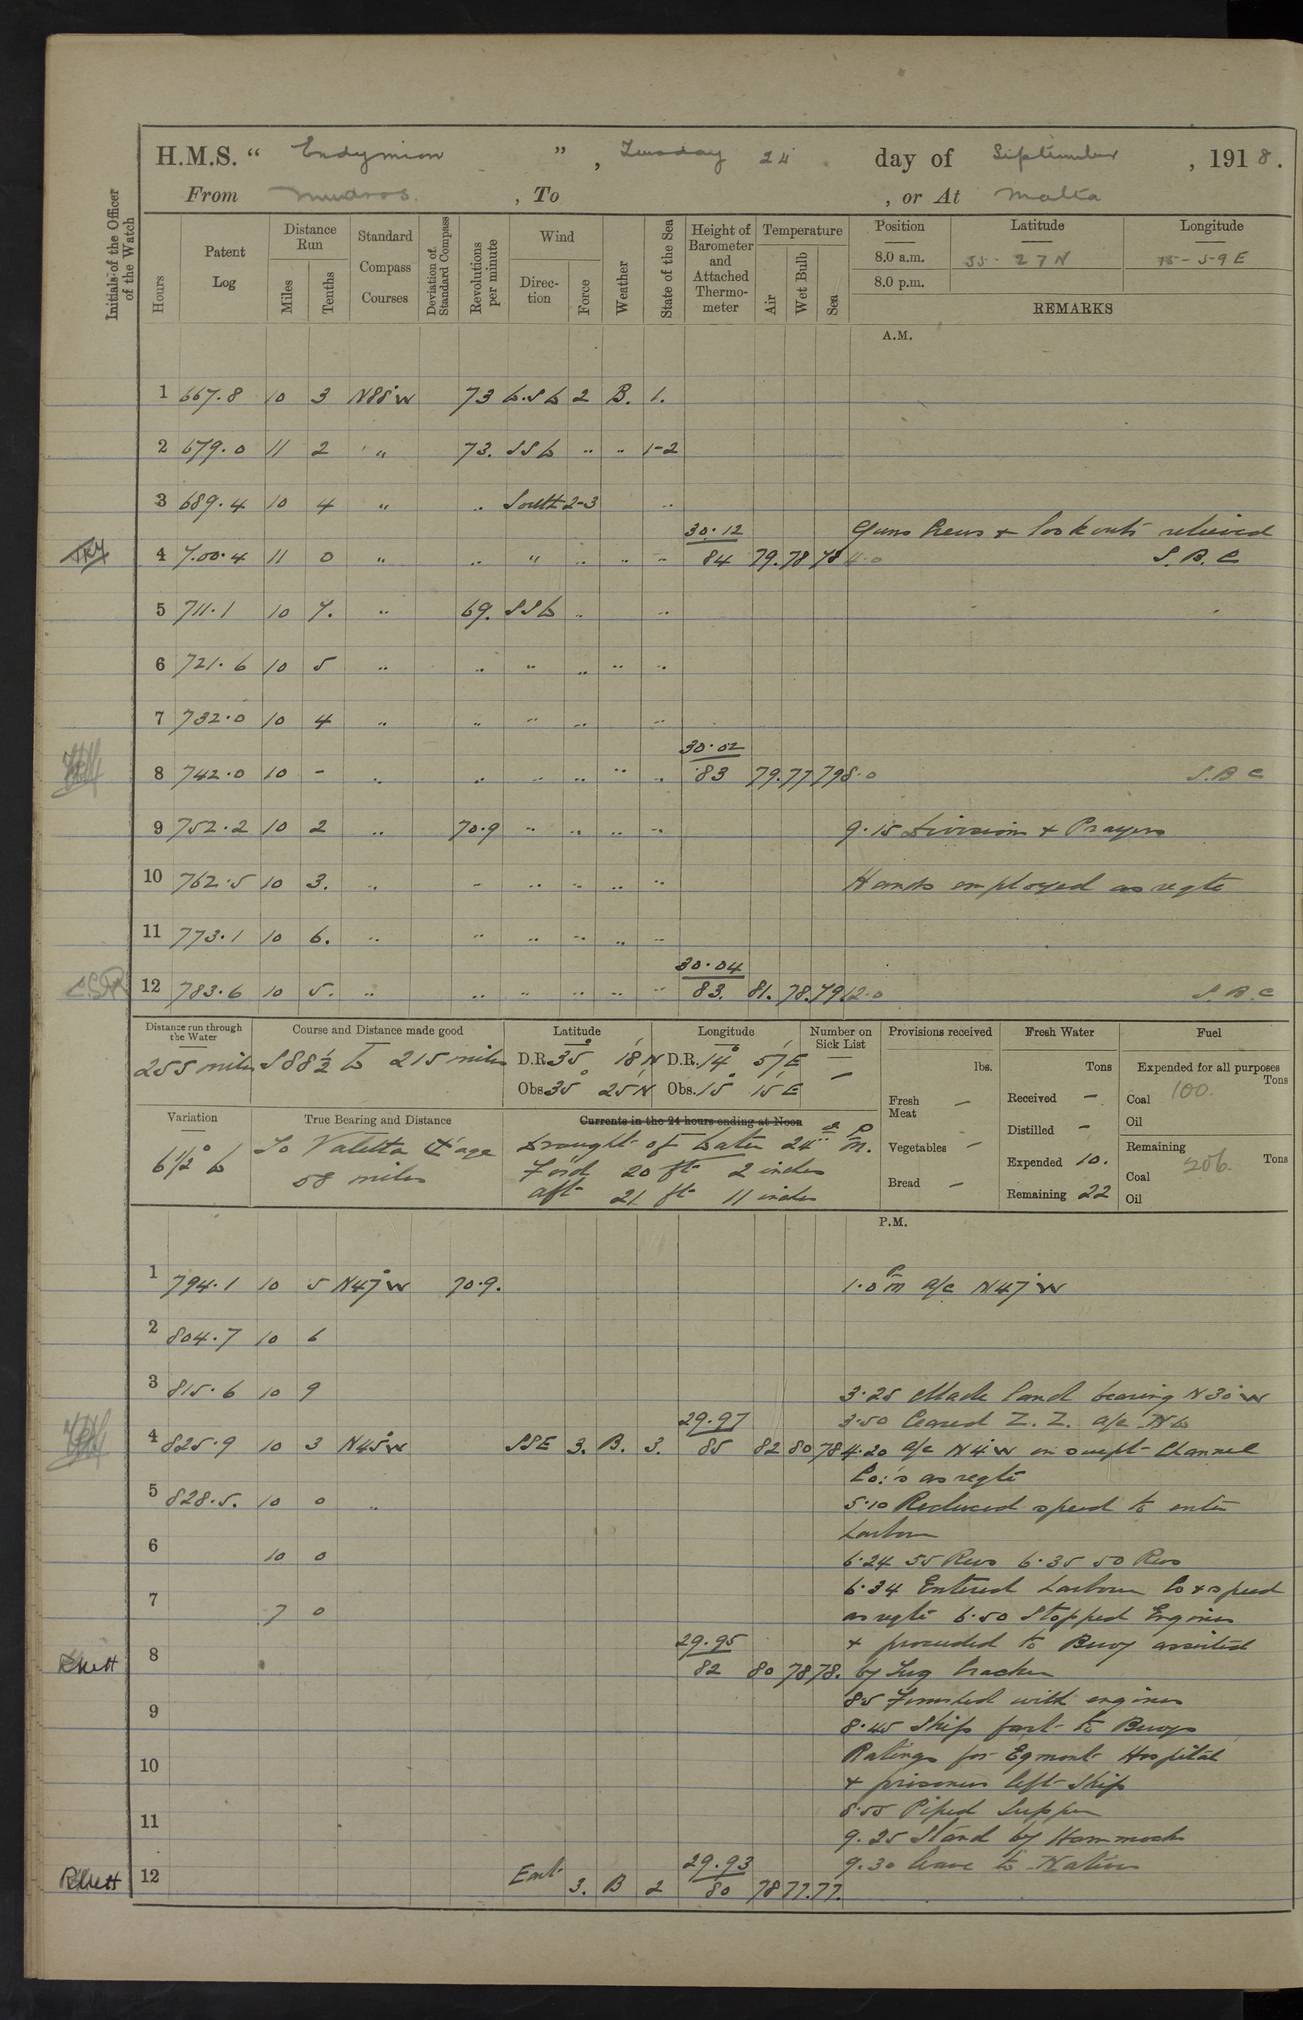 H.M.S. " Endymion ", Tuesday 24 day of September, 1918.
From Mudros, To , or At Malta
Initials of the Officer of the Watch
Hours
Patent Log
Distance Run
Miles
Tenths
Standard Compass Courses
Deviation of Standard Compass
Revolutions per minute
Wind
Direction
Force
Weather
State of the Sea
Height of Barometer and Attached Thermometer
Temperature
Air
Wet Bulb
Sea
Position Latitude Longitude
8.0 a.m. 35-27N 15-59E
8.0 p.m.
REMARKS
A.M.
1 667.8 10 3 N88°W 73 2 B. 1.
2 679.0 11 2 " 73. " " 1-2
3 689.4 10 4 " .. South 2-3 ..
30.12 Guns Crews & lookouts relieved
4 700.4 11 0 " .. " .. .. .. 84 79. 78 78 4.0 S.B.C
5 711.1 10 7. .. 69. .. ..
6 721.6 10 5 .. .. .. .. .. ..
7 732.0 10 4 .. .. .. .. ..
30.02
8 742.0 10 - .. .. .. .. .. .. 83 79. 77 79 8.0 S.B C
9 752.2 10 2 .. 70.9 .. .. .. .. 9.15 Divisions & Prayers
10 762.5 10 3. .. .. .. .. .. .. Hands employed as reqte
11 773.1 10 6. .. .. .. .. .. ..
30.04
12 783.6 10 5. .. .. .. .. .. .. 83. 81. 78. 79 12.0 S.B.C
Distance run through the Water
255 miles
Course and Distance made good
S88½ W 215 miles
Latitude
D.R. 35° 18'N
Obs. 35° 25'N
Longitude
D.R. 14° 57'E
Obs. 15° 15'E
Number on Sick List
—
Provisions received
lbs.
Fresh Meat —
Vegetables —
Bread —
Fresh Water
Tons
Received —
Distilled —
Expended 10.
Remaining 22
Fuel
Expended for all purposes
Tons
Coal 100.
Oil
Remaining
Tons
Coal 206.
Oil
Variation
6½° W
True Bearing and Distance
To Valetta
58 miles
Currents in the 24 hours ending at Noon
Draught of Water 24
For'd 20 ft 2 inches
aft 21 ft 11 inches
P.M.
1 794.1 10 5 N47°W 70.9. 1.0 pm a/c N47°W
2 804.7 10 6
3 815.6 10 9 3.25 Made land bearing N30°W
29.97 3.50 Ceased Z.Z. a/c
4 825.9 10 3 N45°W SSE 3. B. 3. 85 82 80 78 4.20 a/c N4°W in swept Channel
Co:s as reqte
5 828.5. 10 0 .. 5.10 Reduced speed to enter
harbour
6 10 0 6.24 55 Revs 6.35 50 Revs
6.34 Entered harbour Co & speed
7 7 0 as reqte 6.50 Stopped Engines
29.95 & proceeded to Buoy assisted
8 82 80 78 78. by Tug
Finished with engines
9 8.45 Ship fast to Buoys
Ratings for Egmont Hospital
10 & prisoners left Ship
8.55 Piped Supper
11 9.25 Stand by Hammocks
29.93 9.30 leave to Natives
12 East 3. B 2 80 78 77. 77.